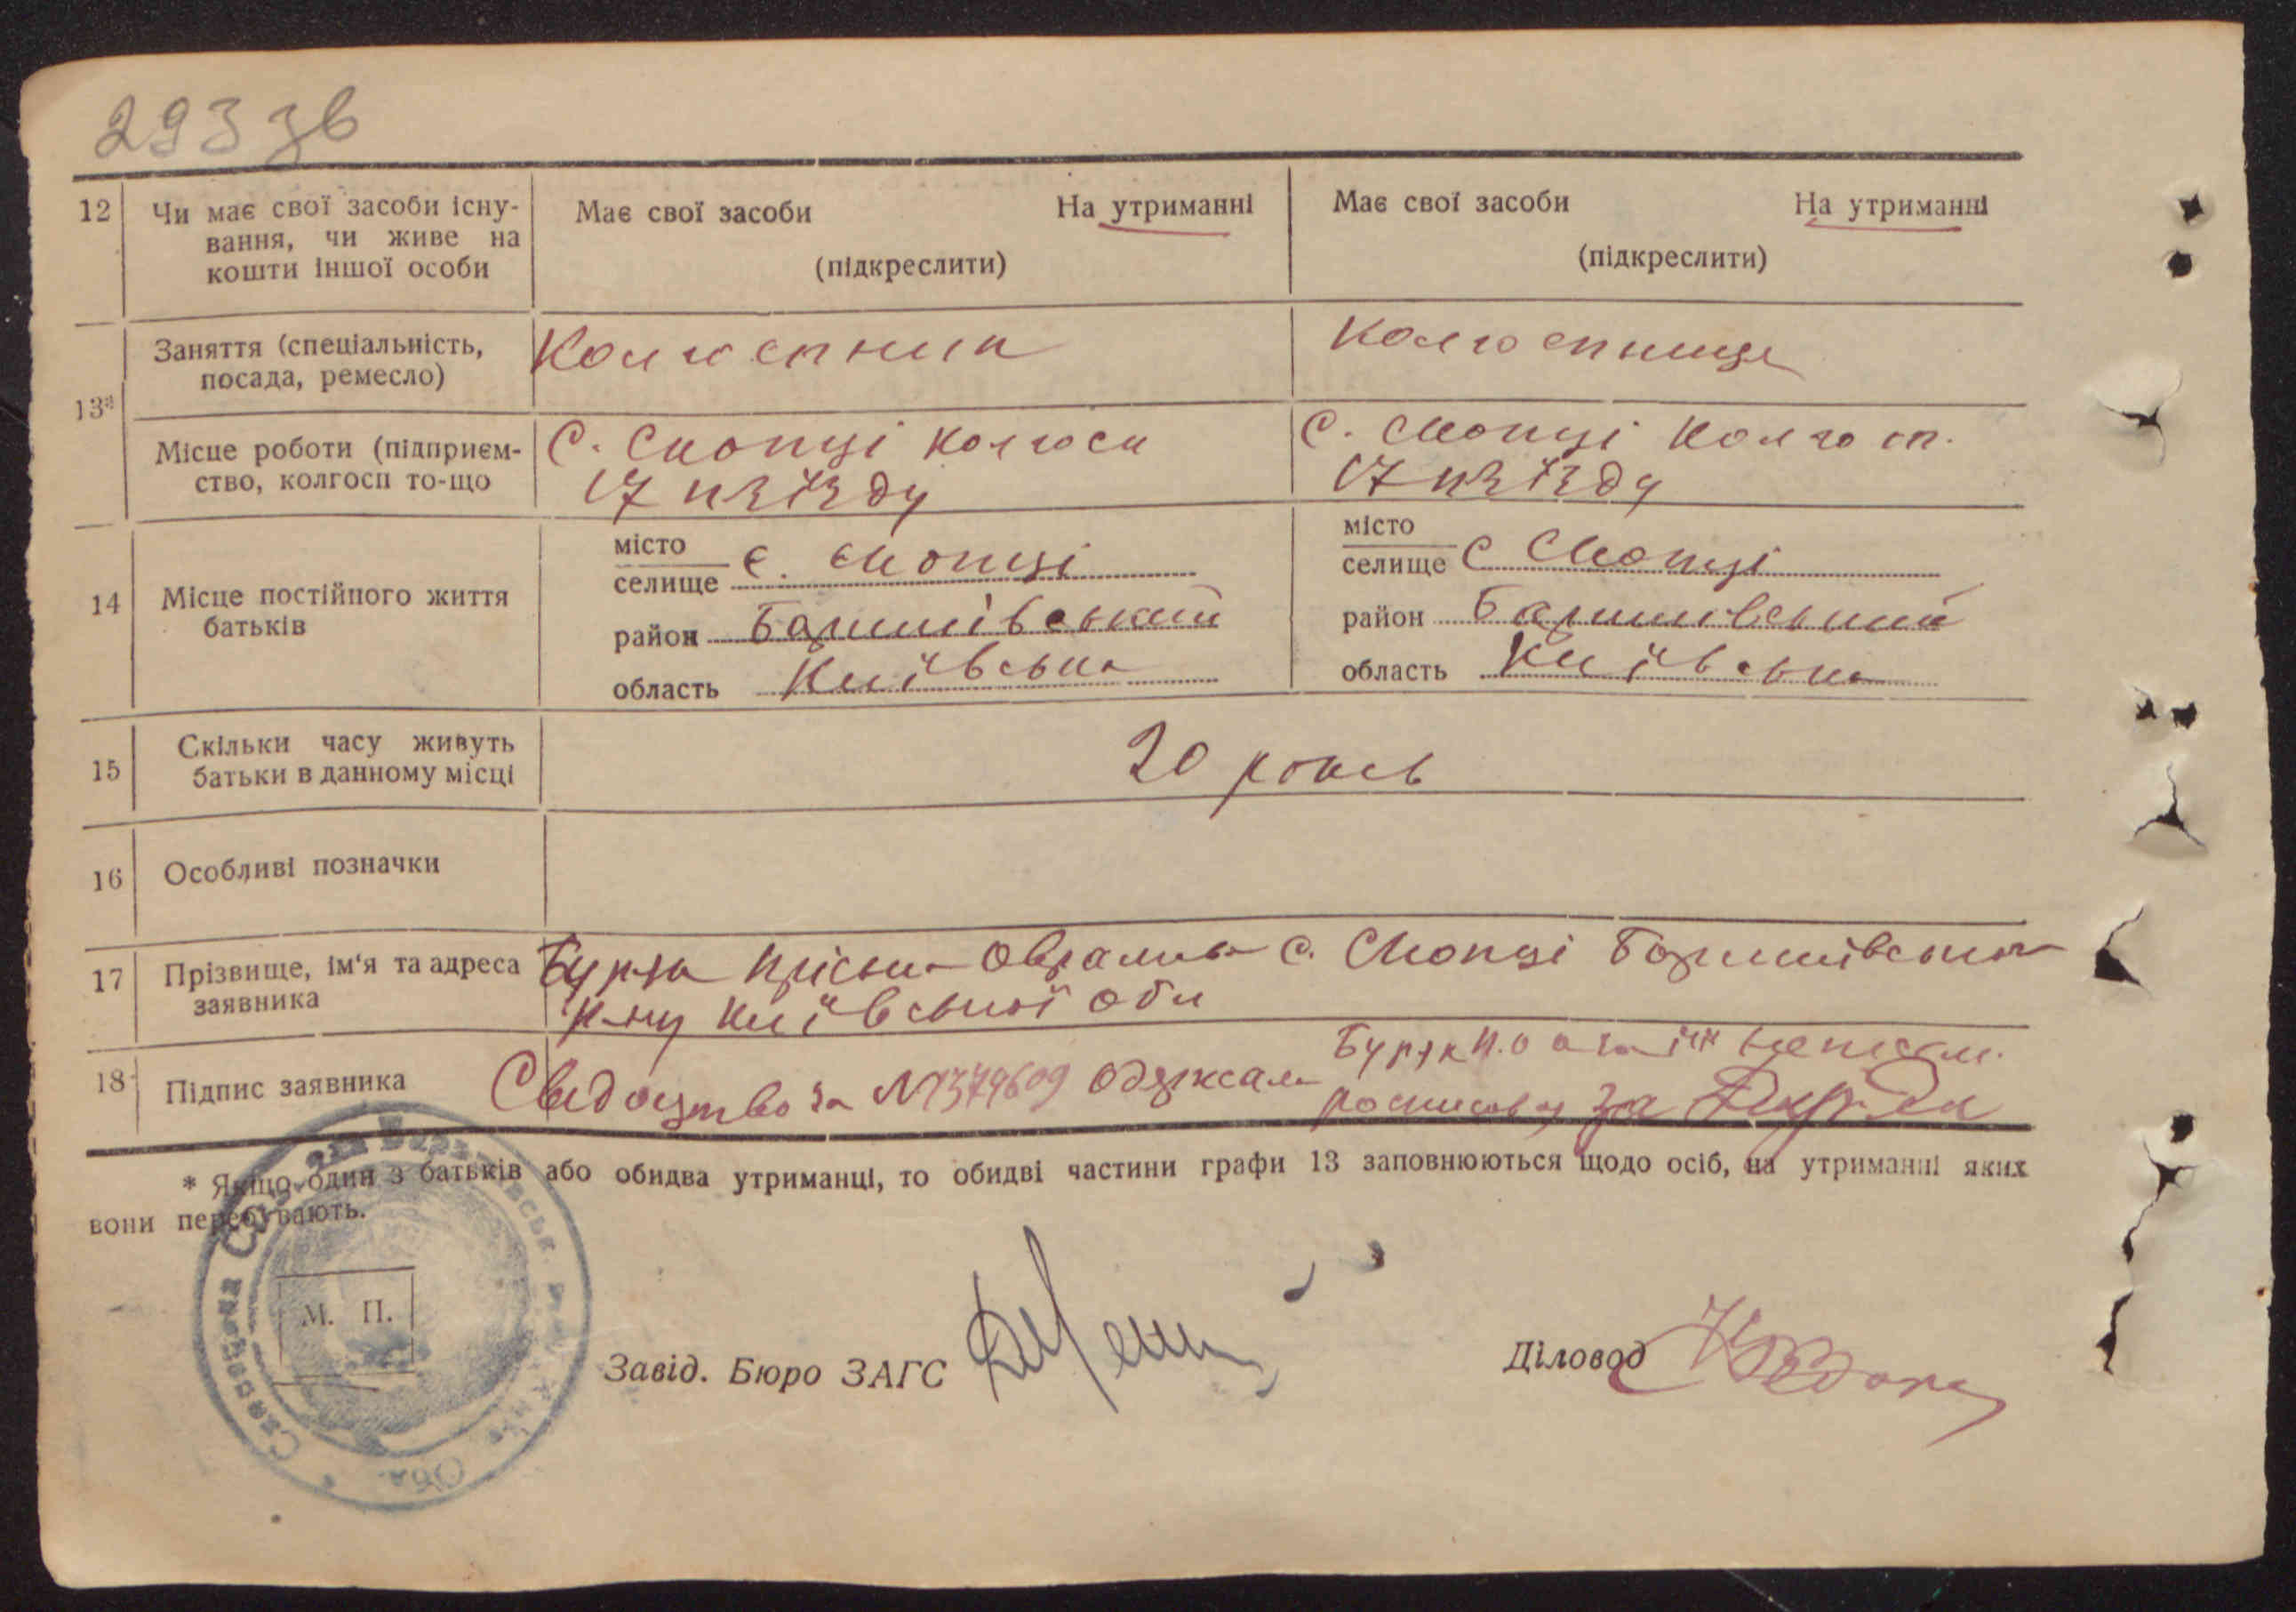 293 зв
12 Чи має свої засоби існу-
вання, чи живе на
кошти іншої особи
Має свої засоби На утриманні
(підкреслити)
Має свої засоби На утриманні
(підкреслити)
13а
Заняття (спеціальність,
посада, ремесло)
Колгоспник
Колгоспниця
Місце роботи (підприєм-
ство, колгосп то-що
С. Скопці колгосп
17 пзїзду
С. Скопці Колгосп.
17 пзїзду
14 Місце постійного життя
батьків
місто
селище с. Скопці
район Баришівський
область Київська
місто
селище с Скопці
район Баришівський
область Київська
15 Скільки часу живуть
батьки в данному місці
20 років
16 Особливі позначки
17 Прізвище, ім'я та адреса
заявника
Прісьна Оврамівна с. Скопці Баришівського
р-ну Київської обл
18 Підпис заявника
Свидоцтво за № 1379609 одержала
за
* Якщо один з батьків або обидва утриманці, то обидві частини графи 13 заповнюються щодо осіб, на утриманні яких
вони перебувають.
М. П.
Завід. Бюро ЗАГС
Діловод